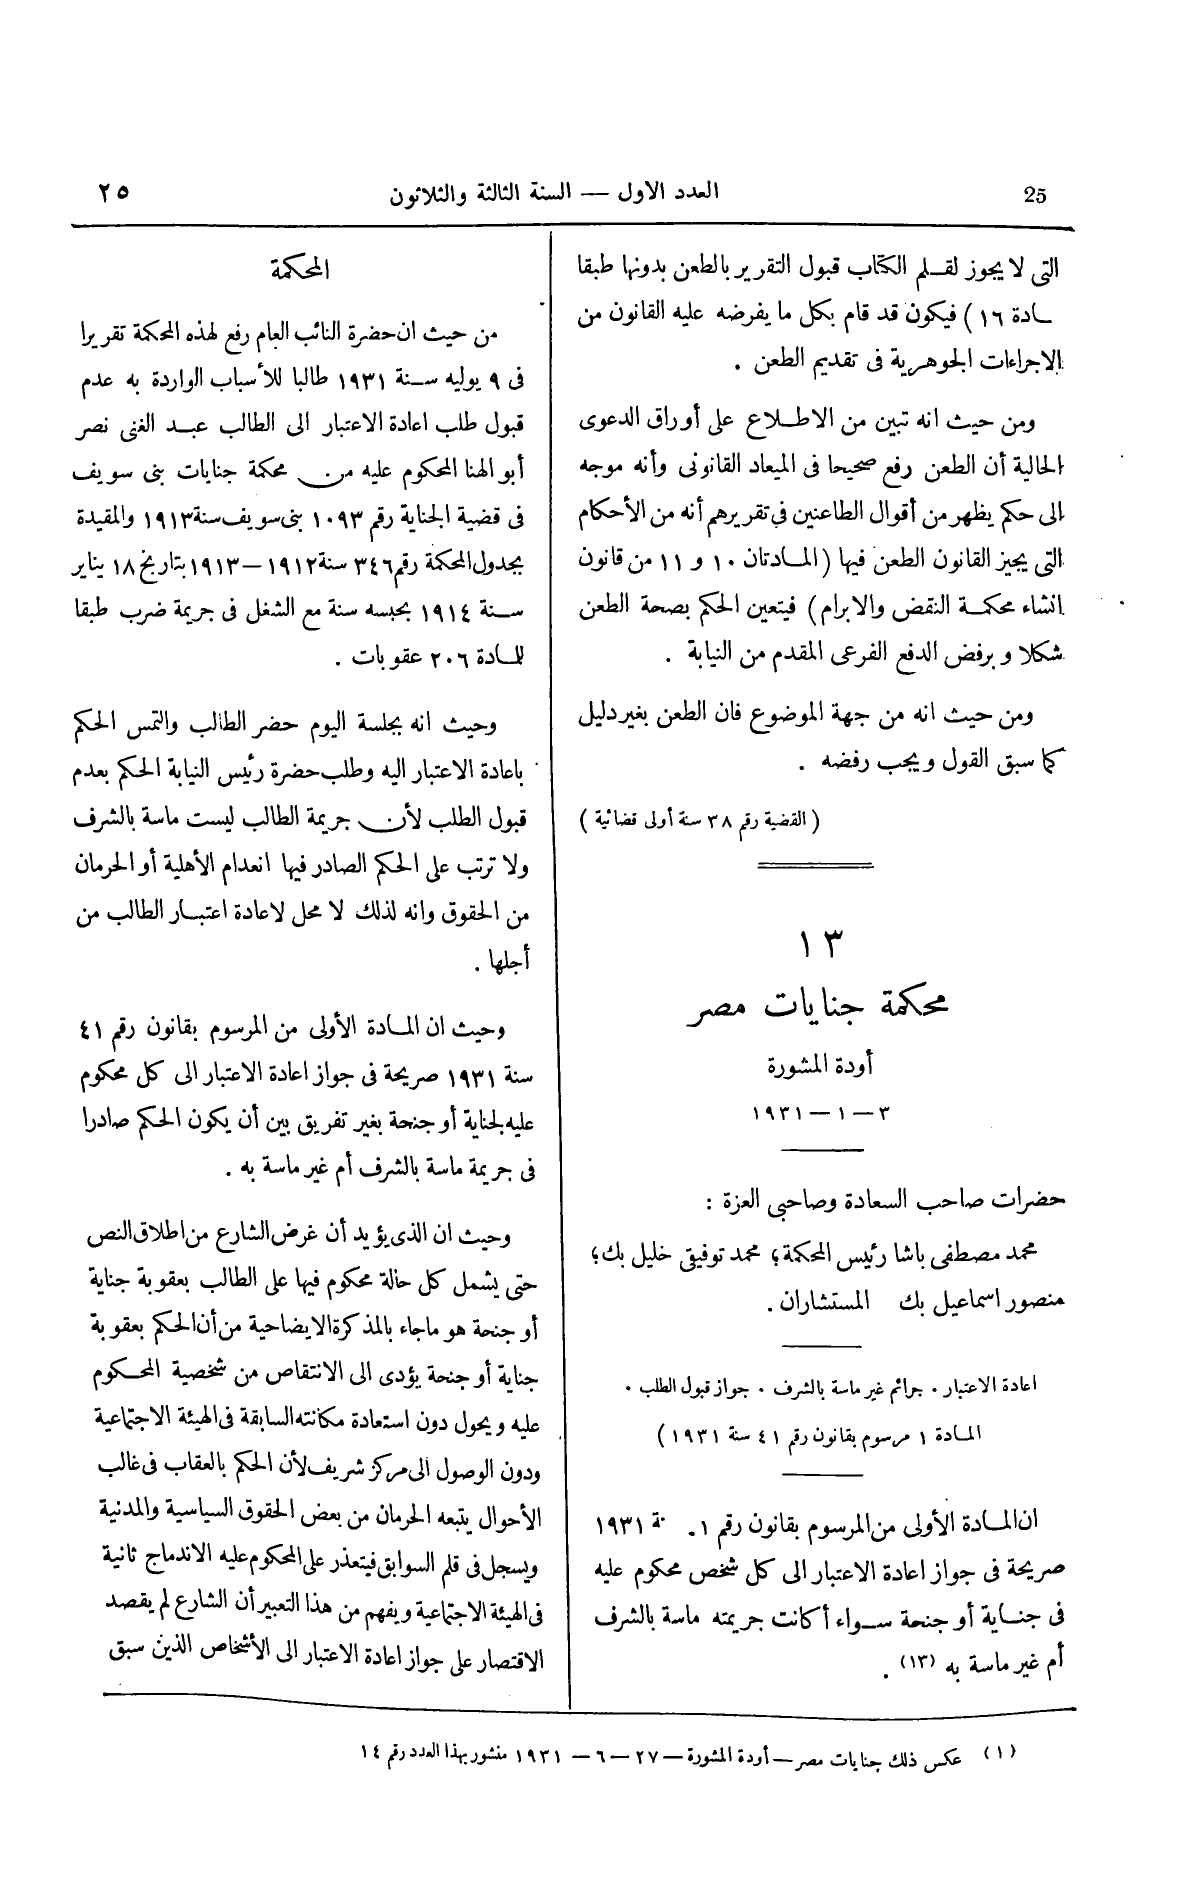 25
العدد الاول — السنة الثالثة والثلاثون
٢٥
التى لا يجوز لقلم الكتاب قبول التقرير بالطعن بدونها طبقا
ـادة ١٦ ) فيكون قد قام بكل ما يفرضه عليه القانون من
الاجراءات الجوهرية فى تقديم الطعن .
ومن حيث انه تبين من الاطلاع على أوراق الدعوى
الحالية أن الطعن رفع صحيحا فى الميعاد القانونى وأنه موجه
الى حكم يظهر من أقوال الطاعنين فى تقريرهم أنه من الأحكام
التى يجيز القانون الطعن فيها ( المادتان ١٠ و ١١ من قانون
انشاء محكمة النقض والابرام ) فيتعين الحكم بصحة الطعن
شكلا وبرفض الدفع الفرعى المقدم من النيابة .
ومن حيث انه من جهة الموضوع فان الطعن بغير دليل
كما سبق القول ويجب رفضه .
( القضية رقم ٣٨ سنة أولى قضائية )
١٣
محكمة جنايات مصر
أودة المشورة
٣ — ١ — ١٩٣١
حضرات صاحب السعادة وصاحبى العزة :
محمد مصطفى باشا رئيس المحكمة؛ محمد توفيق خليل بك؛
منصور اسماعيل بك المستشاران .
اعادة الاعتبار . جرائم غير ماسة بالشرف . جواز قبول الطلب .
المادة ١ مرسوم بقانون رقم ٤١ سنة ١٩٣١ )
ان المادة الأولى من المرسوم بقانون رقم ١. ـة ١٩٣١
صريحة فى جواز اعادة الاعتبار الى كل شخص محكوم عليه
فى جناية أو جنحة سواء أكانت جريمته ماسة بالشرف
أم غير ماسة به (١٣) .
المحكمة
من حيث ان حضرة النائب العام رفع لهذه المحكمة تقريرا
فى ٩ يوليه سنة ١٩٣١ طالبا للأسباب الواردة به عدم
قبول طلب اعادة الاعتبار الى الطالب عبد الغنى نصر
أبو الهنا المحكوم عليه من محكمة جنايات بنى سويف
فى قضية الجناية رقم ١٠٩٣ بنى سويف سنة ١٩١٣ والمقيدة
بجدول المحكمة رقم ٣٤٦ سنة ١٩١٢ — ١٩١٣ بتاريخ ١٨ يناير
سنة ١٩١٤ بحبسه سنة مع الشغل فى جريمة ضرب طبقا
للمادة ٢٠٦ عقوبات .
وحيث انه بجلسة اليوم حضر الطالب والتمس الحكم
باعادة الاعتبار اليه وطلب حضرة رئيس النيابة الحكم بعدم
قبول الطلب لأن جريمة الطالب ليست ماسة بالشرف
ولا ترتب على الحكم الصادر فيها انعدام الأهلية أو الحرمان
من الحقوق وانه لذلك لا محل لاعادة اعتبار الطالب من
أجلها .
وحيث ان المادة الأولى من المرسوم بقانون رقم ٤١
سنة ١٩٣١ صريحة فى جواز اعادة الاعتبار الى كل محكوم
عليه لجناية أو جنحة بغير تفريق بين أن يكون الحكم صادرا
فى جريمة ماسة بالشرف أم غير ماسة به .
وحيث ان الذى يؤيد أن غرض الشارع من اطلاق النص
حتى يشمل كل حالة محكوم فيها على الطالب بعقوبة جناية
أو جنحة هو ما جاء بالمذكرة الايضاحية من أن الحكم بعقوبة
جناية أو جنحة يؤدى الى الانتقاص من شخصية المحكوم
عليه ويحول دون استعادة مكانته السابقة فى الهيئة الاجتماعية
ودون الوصول الى مركز شريف لأن الحكم بالعقاب فى غالب
الأحوال يتبعه الحرمان من بعض الحقوق السياسية والمدنية
ويسجل فى قلم السوابق فيتعذر على المحكوم عليه الاندماج ثانية
فى الهيئة الاجتماعية ويفهم من هذا التعبير أن الشارع لم يقصد
الاقتصار على جواز اعادة الاعتبار الى الأشخاص الذين سبق
(١) عكس ذلك جنايات مصر — أودة المشورة — ٢٧ — ٦ — ١٩٣١ منشور بهذا العدد رقم ١٤